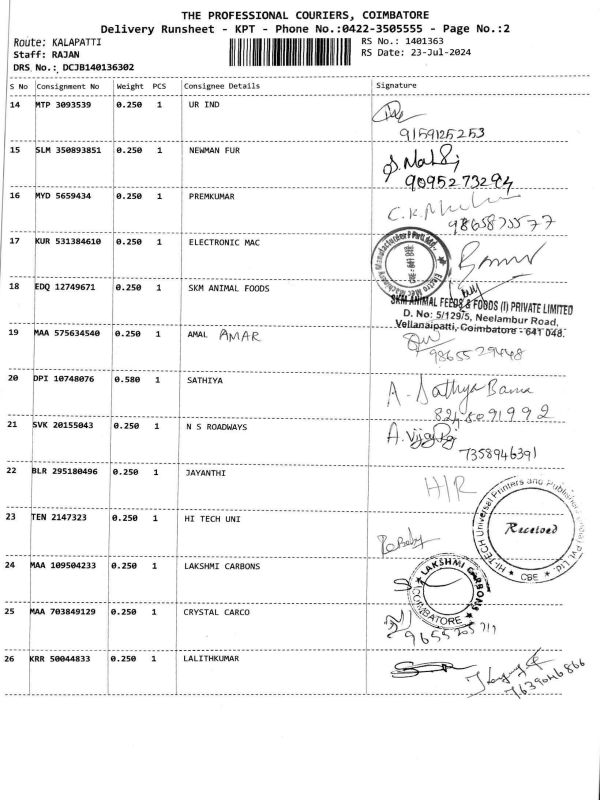 THE PROFESSIONAL COURIERS, COIMBATORE
Delivery Runsheet - KPT - Phone No.:0422-3505555 - Page No.:2
Route: KALAPATTI
RS No.: 1401363
Staff: RAJAN
RS Date: 23-Jul-2024
DRS No.: DCJB140136302
S No Consignment No Weight PCS Consignee Details Signature
14 MTP 3093539 0.250 1 UR IND
9159125253
15 SLM 350893851 0.250 1 NEWMAN FUR
9095273294
16 MYD 5659434 0.250 1 PREMKUMAR
C.K.
9865875577
17 KUR 531384610 0.250 1 ELECTRONIC MAC
18 EDQ 12749671 0.250 1 SKM ANIMAL FOODS
SKM ANIMAL FEEDS & FOODS (I) PRIVATE LIMITED
D. No: 5/129/5, Neelambur Road,
Vellanaipatti, Coimbatore - 641 048.
19 MAA 575634540 0.250 1 AMAL AMAR
9865529448
20 DPI 10748076 0.580 1 SATHIYA
A. Sathya Bama
8248091992
21 SVK 20155043 0.250 1 N S ROADWAYS
A.
7358946391
22 BLR 295180496 0.250 1 JAYANTHI
H/R
23 TEN 2147323 0.250 1 HI TECH UNI
HI-TECH Universal Printers and Publishers Pvt. Ltd.
Received
* CBE *
24 MAA 109504233 0.250 1 LAKSHMI CARBONS
LAKSHMI CARBONS
COIMBATORE
25 MAA 703849129 0.250 1 CRYSTAL CARCO
26 KRR 50044833 0.250 1 LALITHKUMAR
7639046866